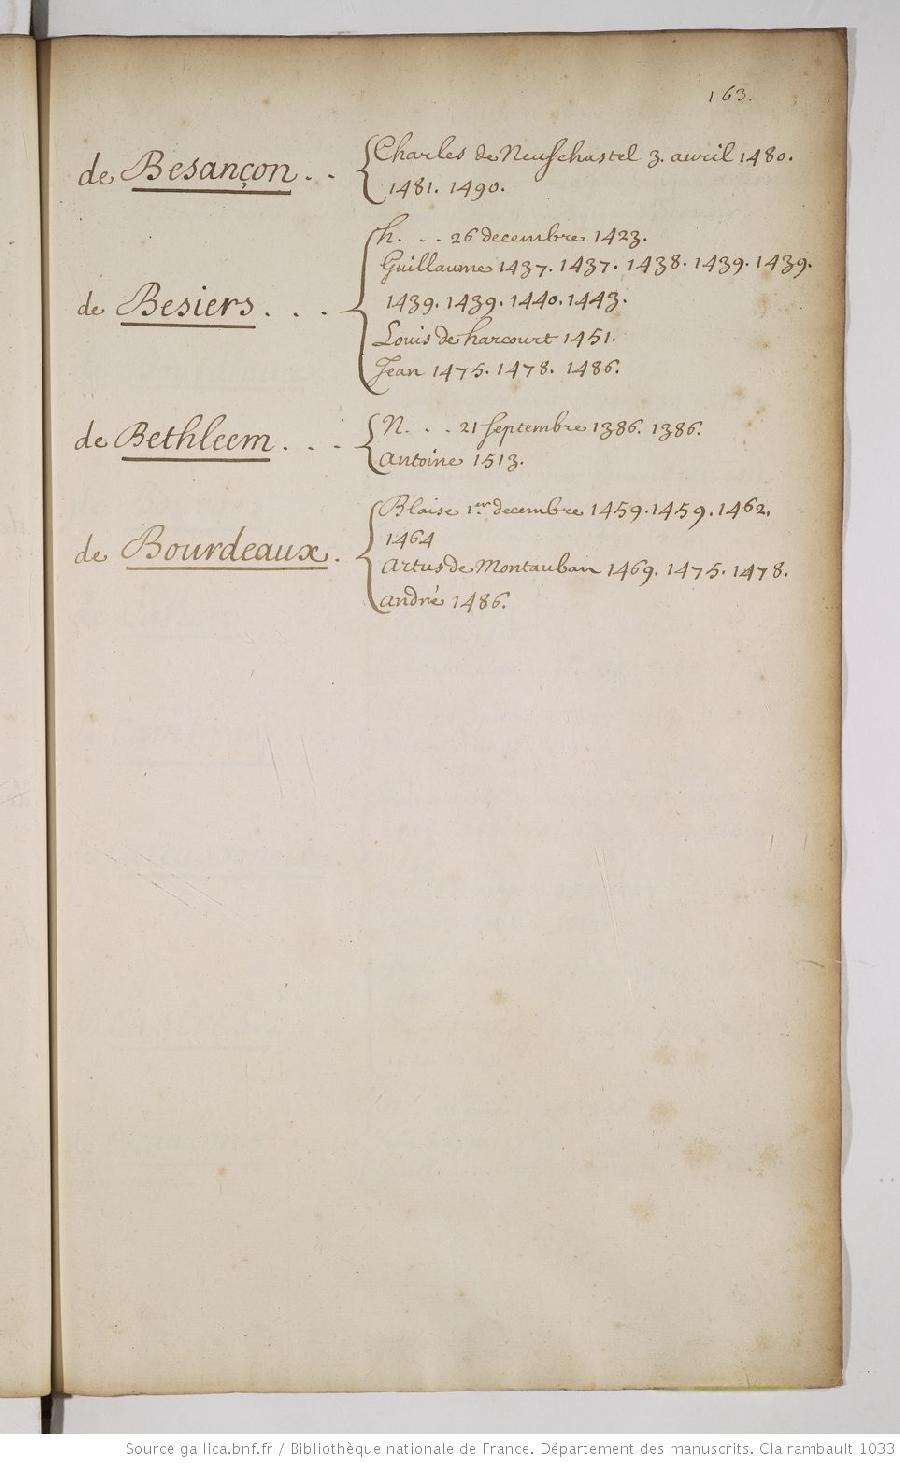 163.
de Besançon . . Charles de Neufchastel 3. avril 1480.
1481. 1490.
h. . . . 26 decembre 1423.
Guillaume 1437. 1437. 1438. 1439. 1439.
de Besiers . . . 1439. 1439. 1440. 1443.
Louis de harcourt 1451.
Jean 1475. 1478. 1486.
de Bethleem . . . N. . . . 21 septembre 1386. 1386.
antoine 1513.
Blaise 1er decembre 1459. 1459. 1462.
1464
de Bourdeaux . artus de Montauban 1469. 1475. 1478.
andré 1486.
Source gallica.bnf.fr / Bibliothèque nationale de France. Département des manuscrits. Clairambault 1033